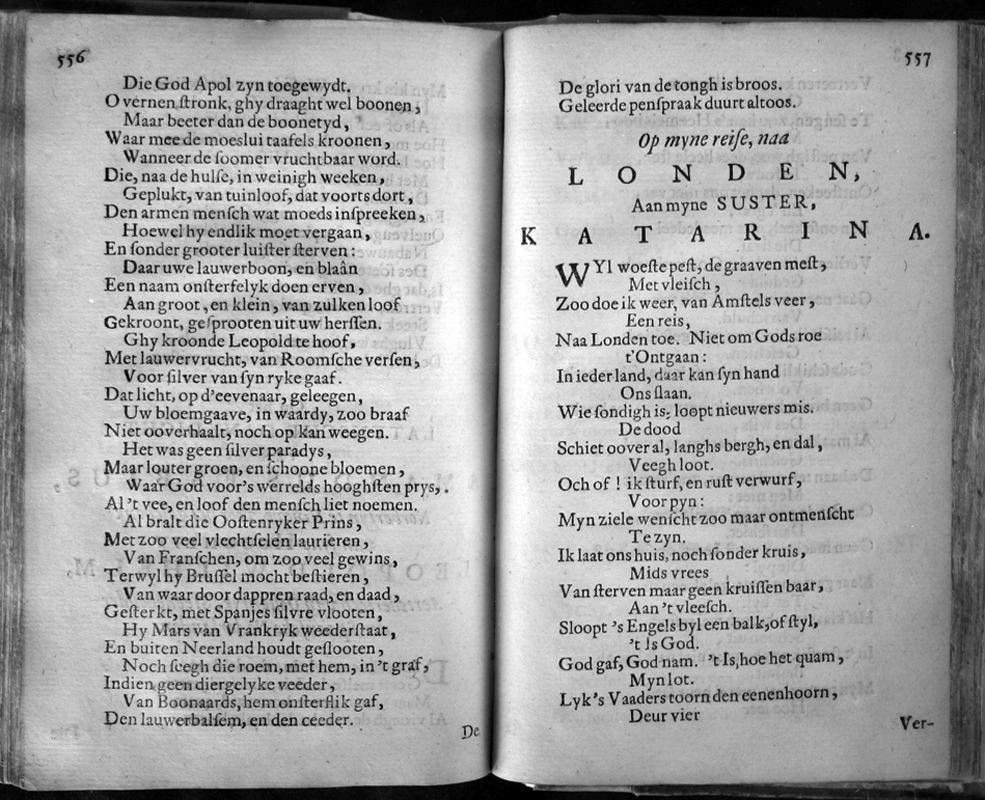 556
Die God Apol zyn toegewydt.
O vernen ſtronk, ghy draaght wel boonen,
Maar beeter dan de boonetyd,
Waar mee de moeslui taafels kroonen,
Wanneer de ſoomer vruchtbaar word.
Die, naa de hulſe, in weinigh weeken,
Geplukt, van tuinloof, dat voorts dort,
Den armen menſch wat moeds inſpreeken,
Hoewel hy endlik moet vergaan,
En ſonder grooter luiſter ſterven:
Daar uwe lauwerboon, en blaân
Een naam onſterfelyk doen erven,
Aan groot, en klein, van zulken loof
Gekroont, geſprooten uit uw herſſen.
Ghy kroonde Leopold te hoof,
Met lauwervrucht, van Roomſche verſen,
Voor ſilver van ſyn ryke gaaf.
Dat licht, op d'eevenaar, geleegen,
Uw bloemgaave, in waardy, zoo braaf
Niet ooverhaalt, noch op kan weegen.
Het was geen ſilver paradys,
Maar louter groen, en ſchoone bloemen,
Waar God voor's werrelds hooghſten prys,.
Al 't vee, en loof den menſch liet noemen.
Al bralt die Ooſtenryker Prins,
Met zoo veel vlechtſelen laurieren,
Van Franſchen, om zoo veel gewins,
Terwyl hy Bruſſel mocht beſtieren,
Van waar door dappren raad, en daad,
Geſterkt, met Spanjes ſilvre vlooten,
Hy Mars van Vrankryk weederſtaat,
En buiten Neerland houdt geſlooten,
Noch ſeegh die roem, met hem, in 't graf,
Indien geen diergelyke veeder,
Van Boonaards, hem onſterflik gaf,
Den lauwerbalſem, en den ceeder.
De
557
De glori van de tongh is broos.
Geleerde penſpraak duurt altoos.
Op myne reiſe, naa
LONDEN,
Aan myne SUSTER,
KATARINA.
WYl woeſte peſt, de graaven meſt,
Met vleiſch,
Zoo doe ik weer, van Amſtels veer,
Een reis,
Naa Londen toe. Niet om Gods roe
t'Ontgaan:
In ieder land, daar kan ſyn hand
Ons ſlaan.
Wie ſondigh is, loopt nieuwers mis.
De dood
Schiet oover al, langhs bergh, en dal,
Veegh loot.
Och of! ik ſturf, en ruſt verwurf,
Voor pyn:
Myn ziele wenſcht zoo maar ontmenſcht
Te zyn.
Ik laat ons huis, noch ſonder kruis,
Mids vrees
Van ſterven maar geen kruiſſen baar,
Aan 't vleeſch.
Sloopt 's Engels byl een balk, of ſtyl,
't Is God.
God gaf, God nam. 't Is, hoe het quam,
Myn lot.
Lyk 's Vaaders toorn den eenenhoorn,
Deur vier
Ver-